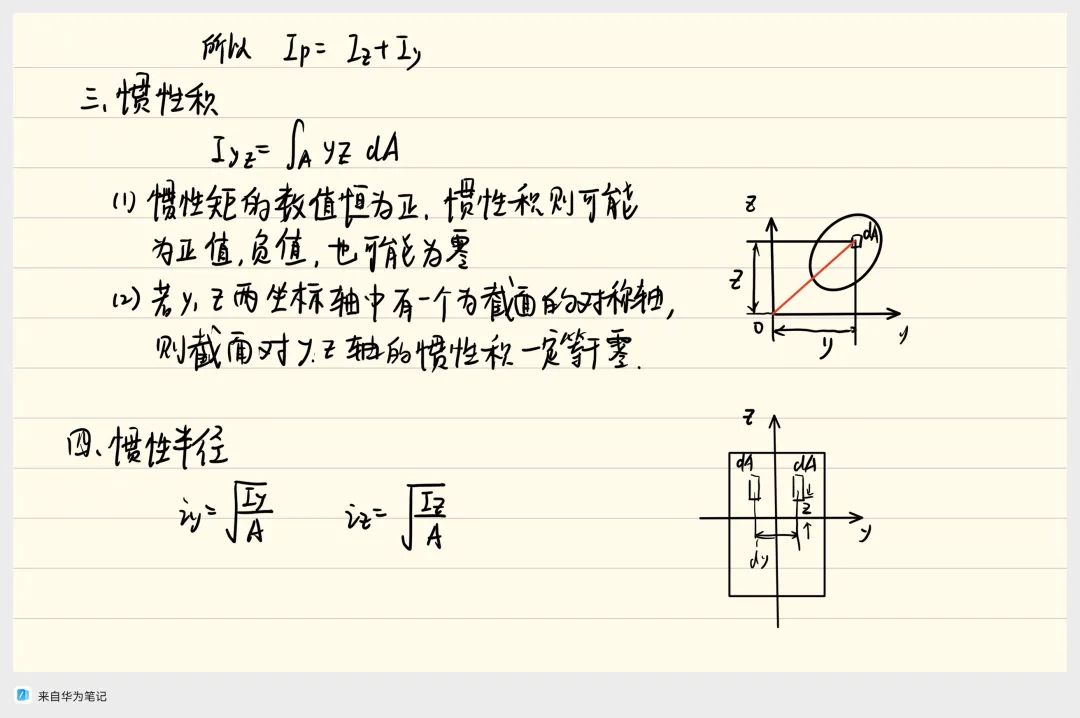 所以 Ip = Iz + Iy
三、惯性积
Iyz = ∫A yz dA
(1) 惯性矩的数值恒为正，惯性积则可能
为正值，负值，也可能为零
(2) 若y、z两坐标轴中有一个为截面的对称轴，
则截面对y、z轴的惯性积一定等于零.
z
dA
z
0
y
y
四、惯性半径
iy = √(Iy/A) iz = √(Iz/A)
z
dA dA
z
y
dy
来自华为笔记